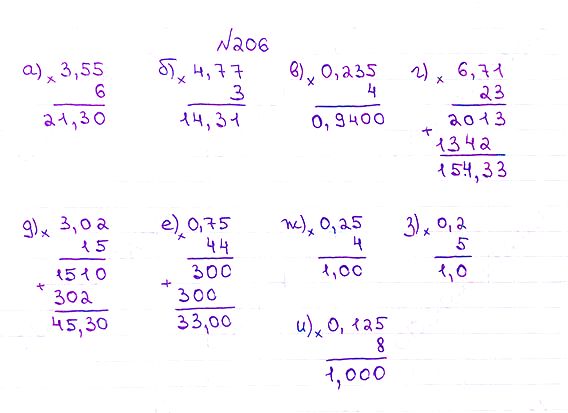 №206
а) × 3,55 б) × 4,77 в) × 0,235 г) × 6,71
6 3 4 23
21,30 14,31 0,9400 + 2013
1342
154,33
д) × 3,02 е) × 0,75 ж) × 0,25 з) × 0,2
15 44 4 5
+ 1510 + 300 1,00 1,0
302 300
45,30 33,00 и) × 0,125
8
1,000